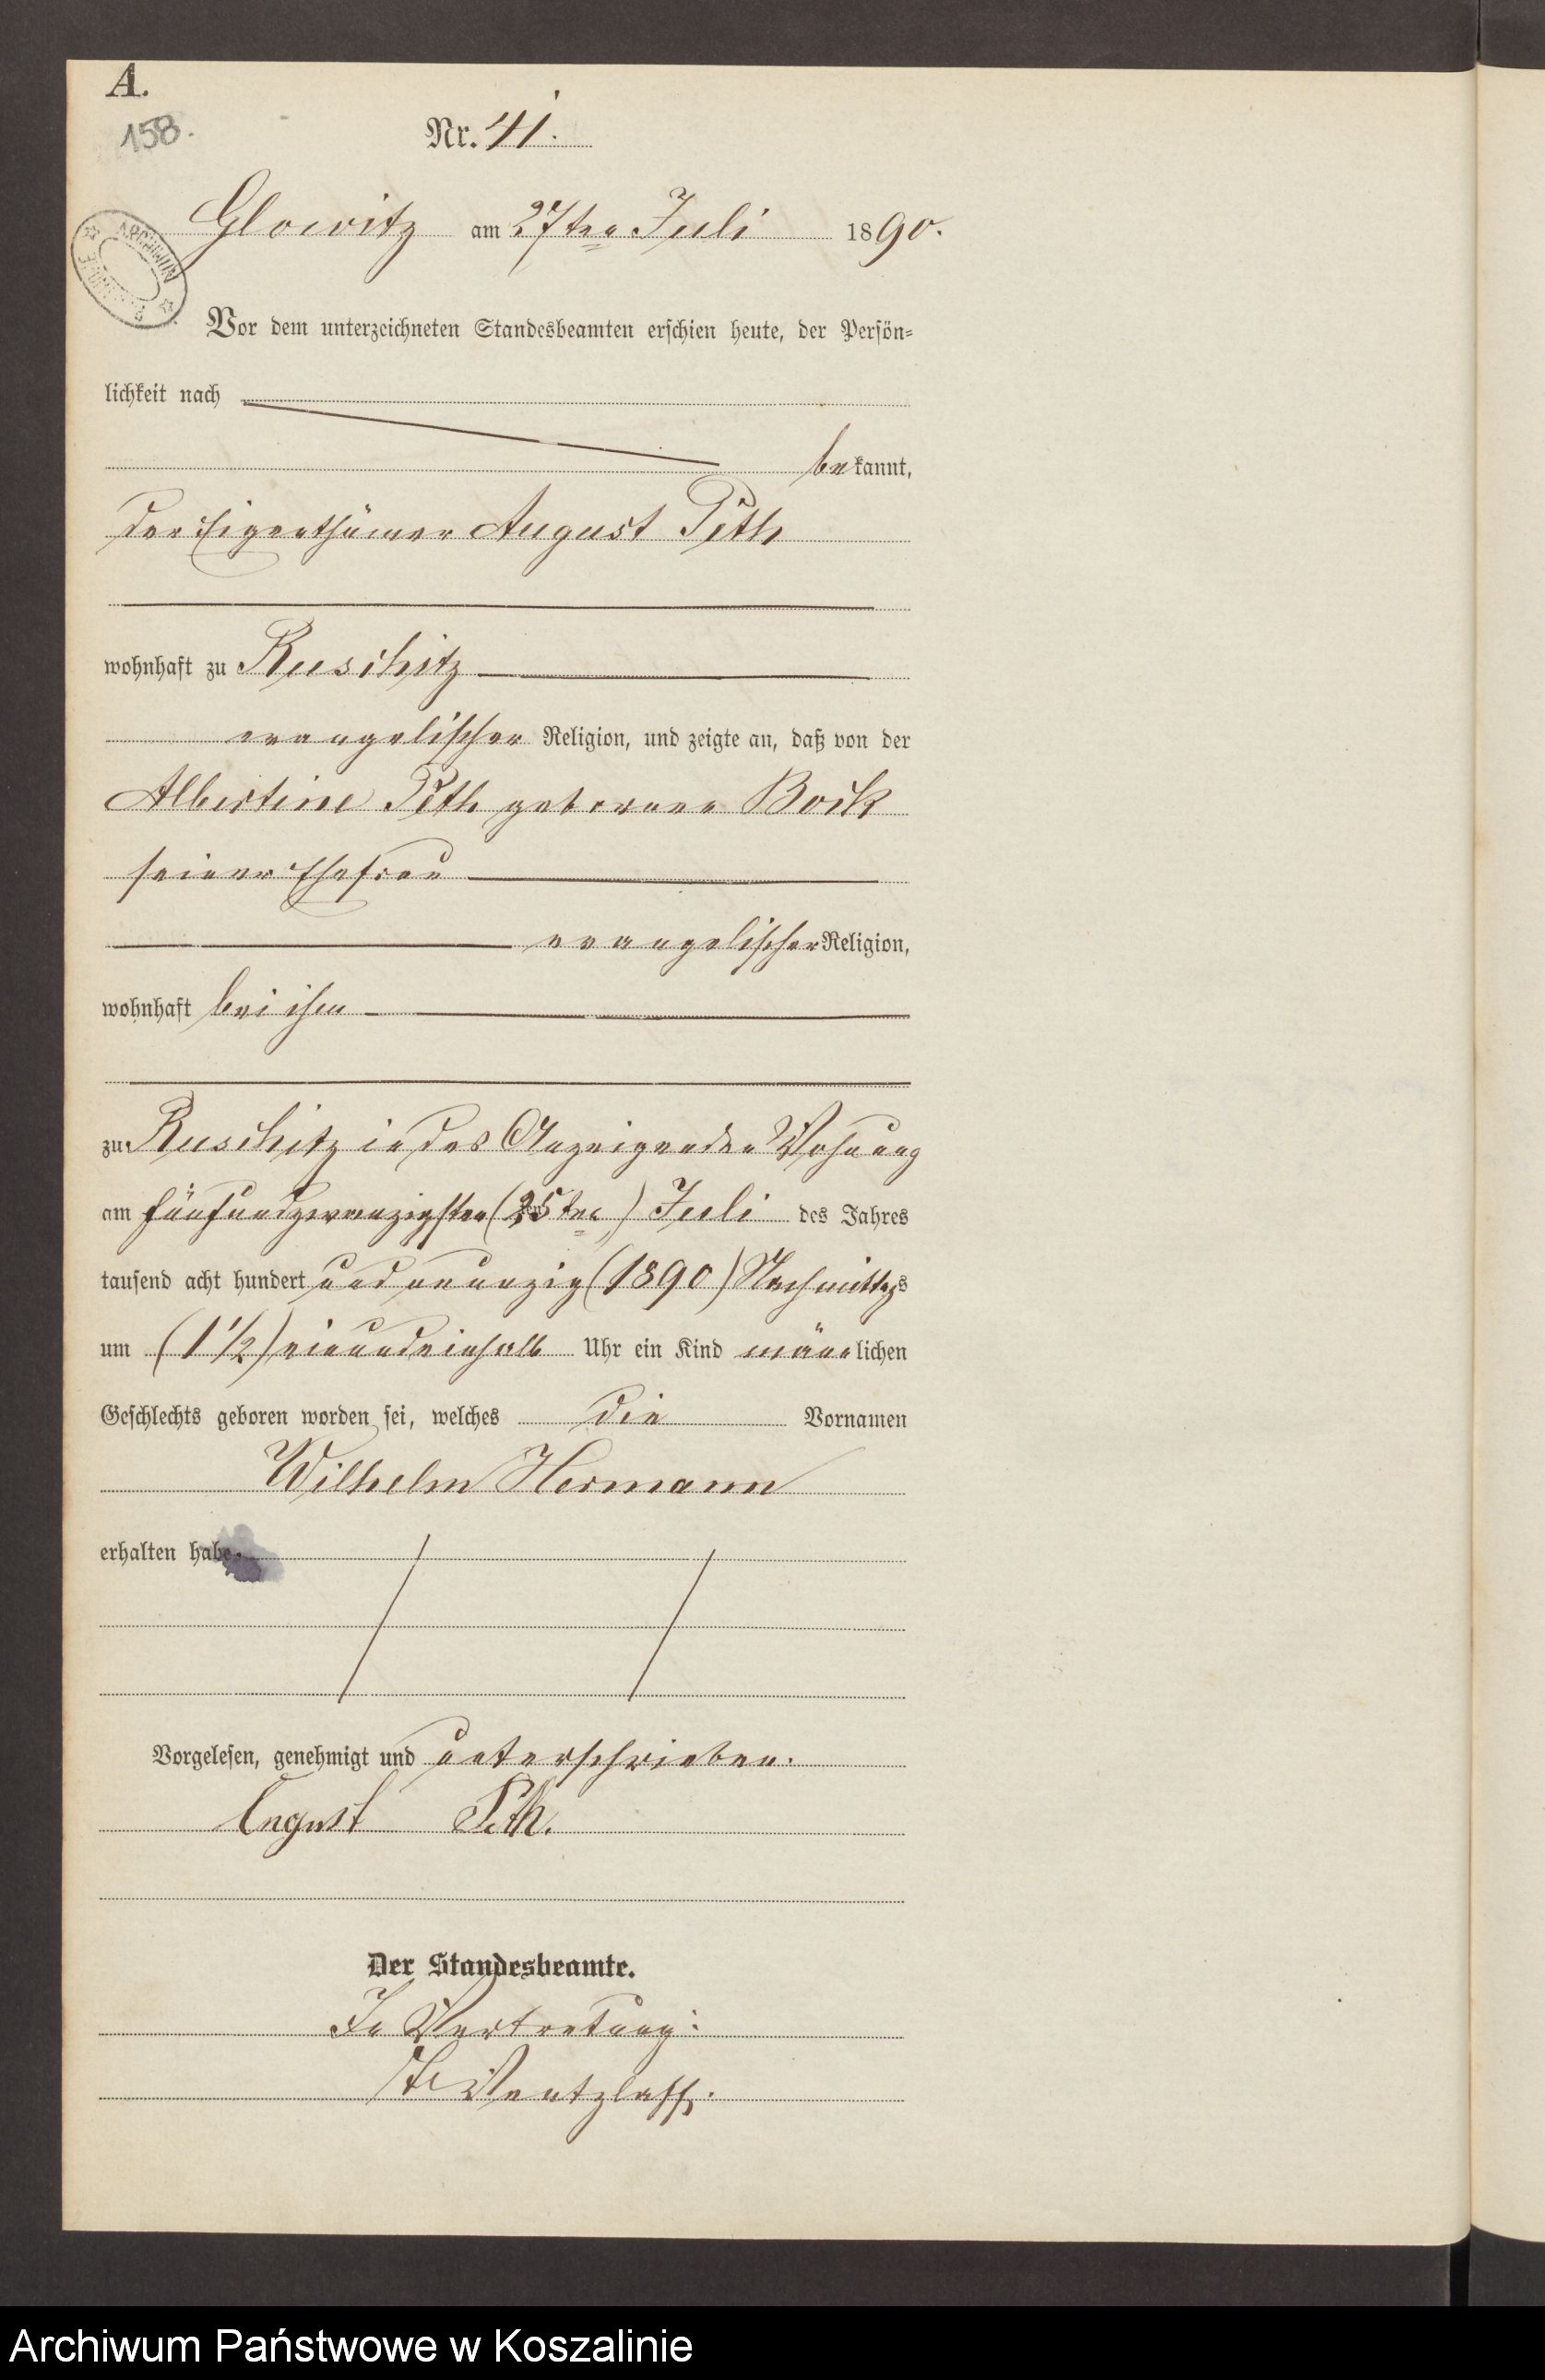 A.
158.
Nr. 41.
Glowitz am 27ten Juli 1890.
ARCHIWUM
Vor dem unterzeichneten Standesbeamten erschien heute, der Persön-
lichkeit nach
bekannt,
der Eigenthümer August Peth
wohnhaft zu Ruschitz
evangelischer Religion, und zeigte an, daß von der
Albertine Peth geborenen Bock
seiner Ehefrau
evangelischer Religion,
wohnhaft bei ihm
zu Ruschitz in des Anzeigenden Wohnung
am fünfundzwanzigsten (25ten) Juli des Jahres
tausend acht hundert und neunzig (1890) Nachmittags
um (1 1/2) einundeinhalb Uhr ein Kind männlichen
Geschlechts geboren worden sei, welches die Vornamen
Wilhelm Hermann
erhalten habe.
Vorgelesen, genehmigt und unterschrieben.
August Peth.
Der Standesbeamte.
In Vertretung:
Wentzlaff.
Archiwum Państwowe w Koszalinie